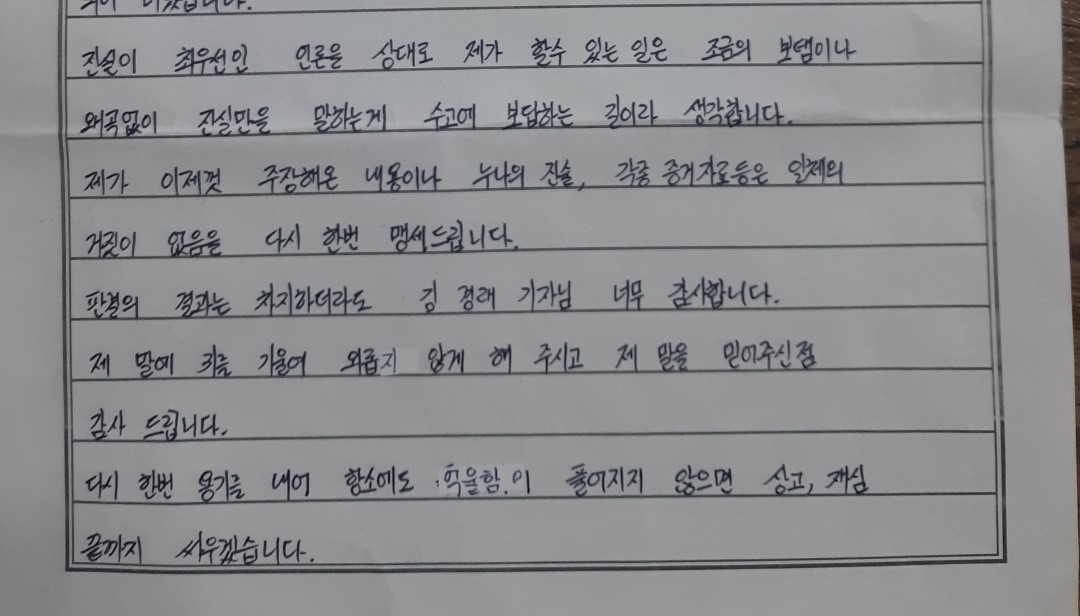 진실이 최우선인 언론을 상대로 제가 할수 있는 일은 조금의 보탬이나
왜곡없이 진실만을 말하는게 수고에 보답하는 길이라 생각합니다.
제가 이제껏 주장해온 내용이나 누나의 진술, 각종 증거자료등은 일체의
거짓이 없음을 다시 한번 맹세드립니다.
판결의 결과는 차치하더라도 김 경래 기자님 너무 감사합니다.
제 말에 귀를 기울여 외롭지 않게 해 주시고 제 말을 믿어주신점
감사 드립니다.
다시 한번 용기를 내어 항소에도 억울함이 풀어지지 않으면 상고, 재심
끝까지 싸우겠습니다.